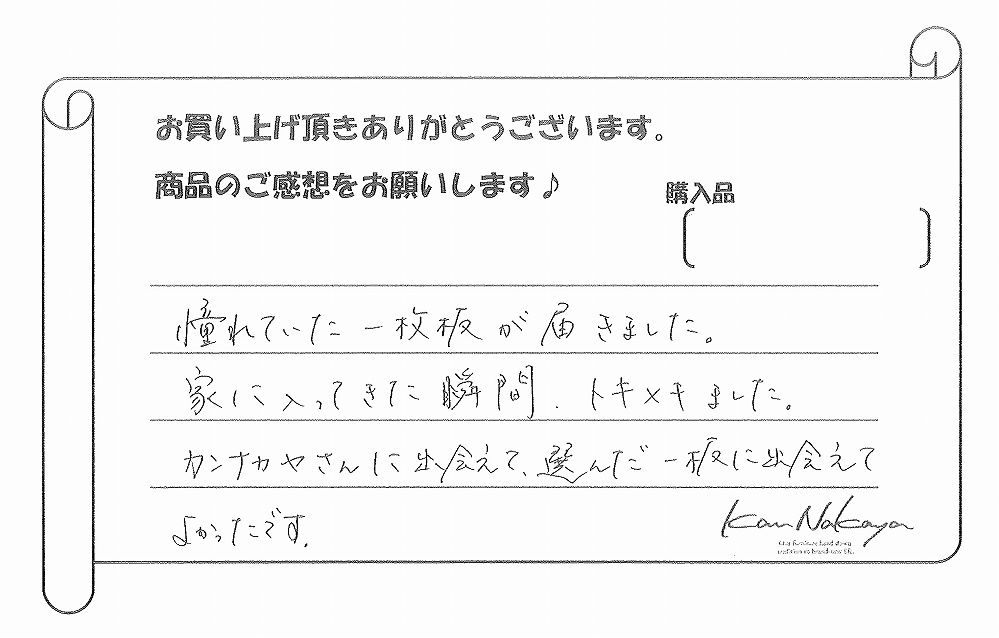 お買い上げ頂きありがとうございます。
商品のご感想をお願いします♪
購入品
憧れていた一枚板が届きました。
家に入ってきた瞬間、トキメキました。
カンナカヤさんに出会えて、選んだ一板に出会えて
よかったです。
KanNakaya